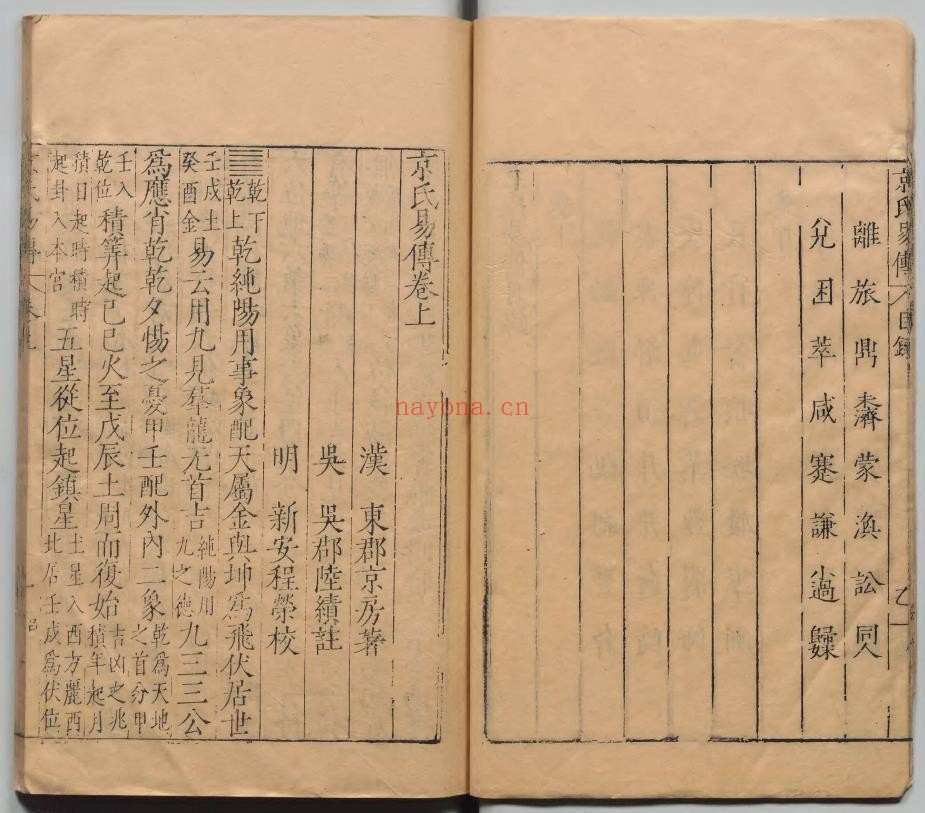 京氏易傳 目錄
離 旅 鼎 未濟 蒙 渙 訟 同人
兌 困 萃 咸 蹇 謙 小過 歸妹
京氏易傳卷上
漢 東郡京房著
吳 吳郡陸績註
明 新安程榮校
䷀乾下乾上乾純陽用事象配天屬金與坤爲飛伏居世
壬戌土癸酉金易云用九見羣龍无首吉純陽用九之德九三三公
爲應肖乾乾夕惕之憂甲壬配外內二象乾爲天地之首分甲
壬入乾位積筭起己巳火至戊辰土周而復始吉凶之兆積年起月
積日起時積時起卦入本宮五星從位起鎮星土星入西方麗西北居壬戌爲伏位
nayona.cn